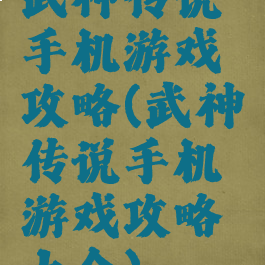 武神传说
手机游戏
攻略(武神
传说手机
游戏攻略
大全)